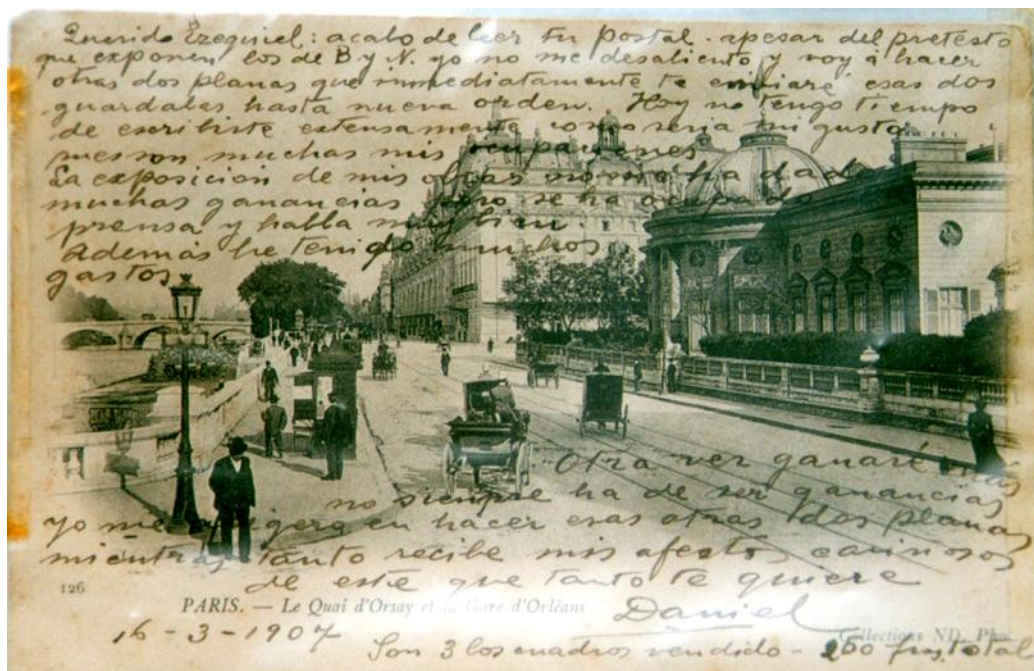 Querido Ezequiel: acabo de leer tu postal. apesar del pretesto
que exponen los de B y N. yo no me desaliento y voy á hacer
otras dos planas que inmediatamente te enviaré esas dos
guardalas hasta nueva orden. Hoy no tengo tiempo
de escribirte extensamente como seria mi gusto
pues son muchas mis ocupaciones
La exposicion de mis obras no me ha dado
muchas ganancias pero se ha ocupado
prensa y habla muy bien
Además he tenido muchos
gastos
Otra vez ganaré más
no siempre ha de ser ganancias
yo me en hacer esas otras dos planas
mientras tanto recibe mis afectos cariñosos
de este que tanto te quiere
Daniel
126
PARIS. — Le Quai d'Orsay et la Gare d'Orléans
Collections ND. Phot
16-3-1907
Son 3 los cuadros vendido - 250 frs total